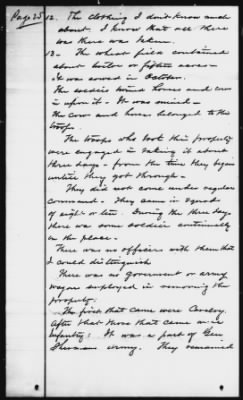 Page 25
12. The clothing I don't know much
about. I know that all there
was there was taken.
13- The wheat field contained
about twelve or fifteen acres-
it was sowed in October.
The soldiers turned horses and cows
in upon it - It was ruined -
The cows and horses belonged to the
troops.
The troops who took this property
were engaged in taking it about
three days - from the time they began
until they got through -
They did not come under regular
command - They came in squads
of eight or ten. During the three days
there was some soldiers continually
on the place -
There was no officers with them that
I could distinguish
There was no government or army
wagons employed in removing the
property.
The first that came were Cavalry.
After that those that came were
Infantry. It was a part of Gen
Sherman army. They remained